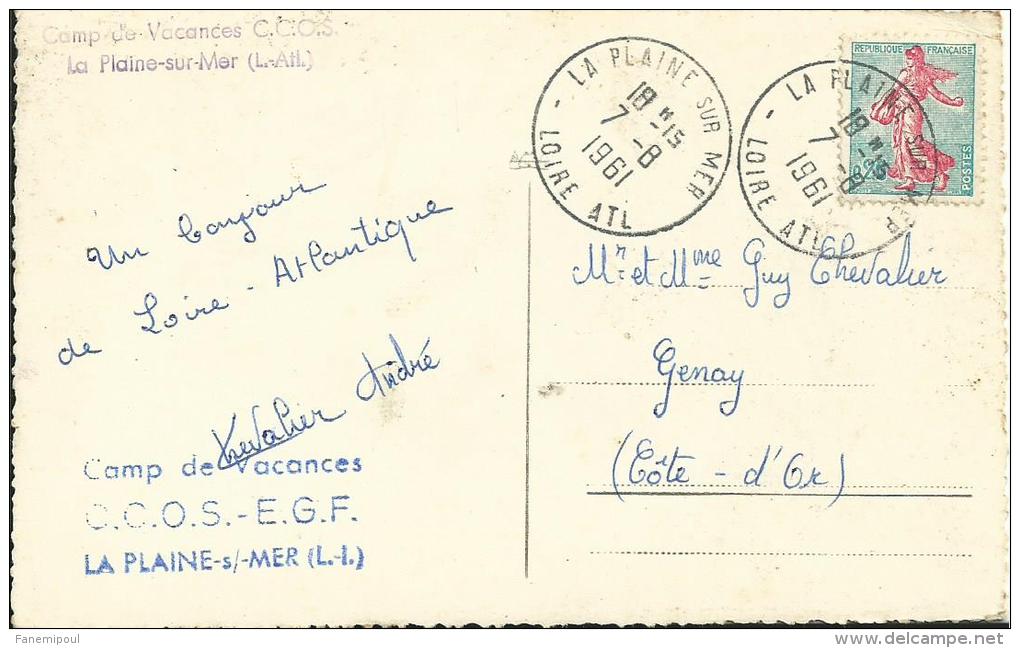 Camp de Vacances C.C.O.S.
La Plaine-sur-Mer (L.-Atl.)
LA PLAINE SUR MER
18 H 15
7 - 8
1961
LOIRE ATL
LA PLAINE SUR MER
18 H 15
7 - 8
1961
LOIRE ATL
REPUBLIQUE FRANÇAISE
0,20
POSTES
Un bonjour
de Loire-Atlantique
Chevalier André
Camp de Vacances
C.C.O.S.-E.G.F.
LA PLAINE-s/-MER (L.-I.)
Mr et Mme Guy Chevalier
Genay
(Côte-d'Or)
Fanemipoul
delcampe.net